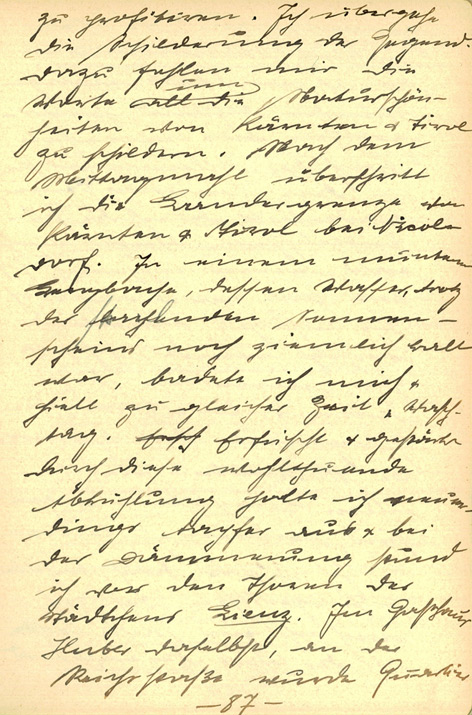 zu profitiren. Ich übergehe
die Schilderung der Gegend.
dazu fehlen mir die
Worte um all die Naturschön-
heiten von Kärnten & Tirol
zu schildern. Nach dem
Mittagmahl überschritt
ich die Landesgrenze von
Kärnten & Tirol bei Nicols-
dorf. In einem muntern
Bergbache, dessen Wasser, trotz
des strahlenden Sonnen-
scheins noch ziemlich kalt
war, badete ich mich &
hielt zu gleicher Zeit, Wasch-
tag. Erfrischt & gestärkt
durch diese wohlthuende
Abkühlung holte ich neuer-
dings tapfer aus & bei
der Dämmerung stund
ich vor den Thoren des
Städtchens Lienz. Im Gasthaus
Huber daselbst, an der
Reichsstraße wurde Quartier
-87-